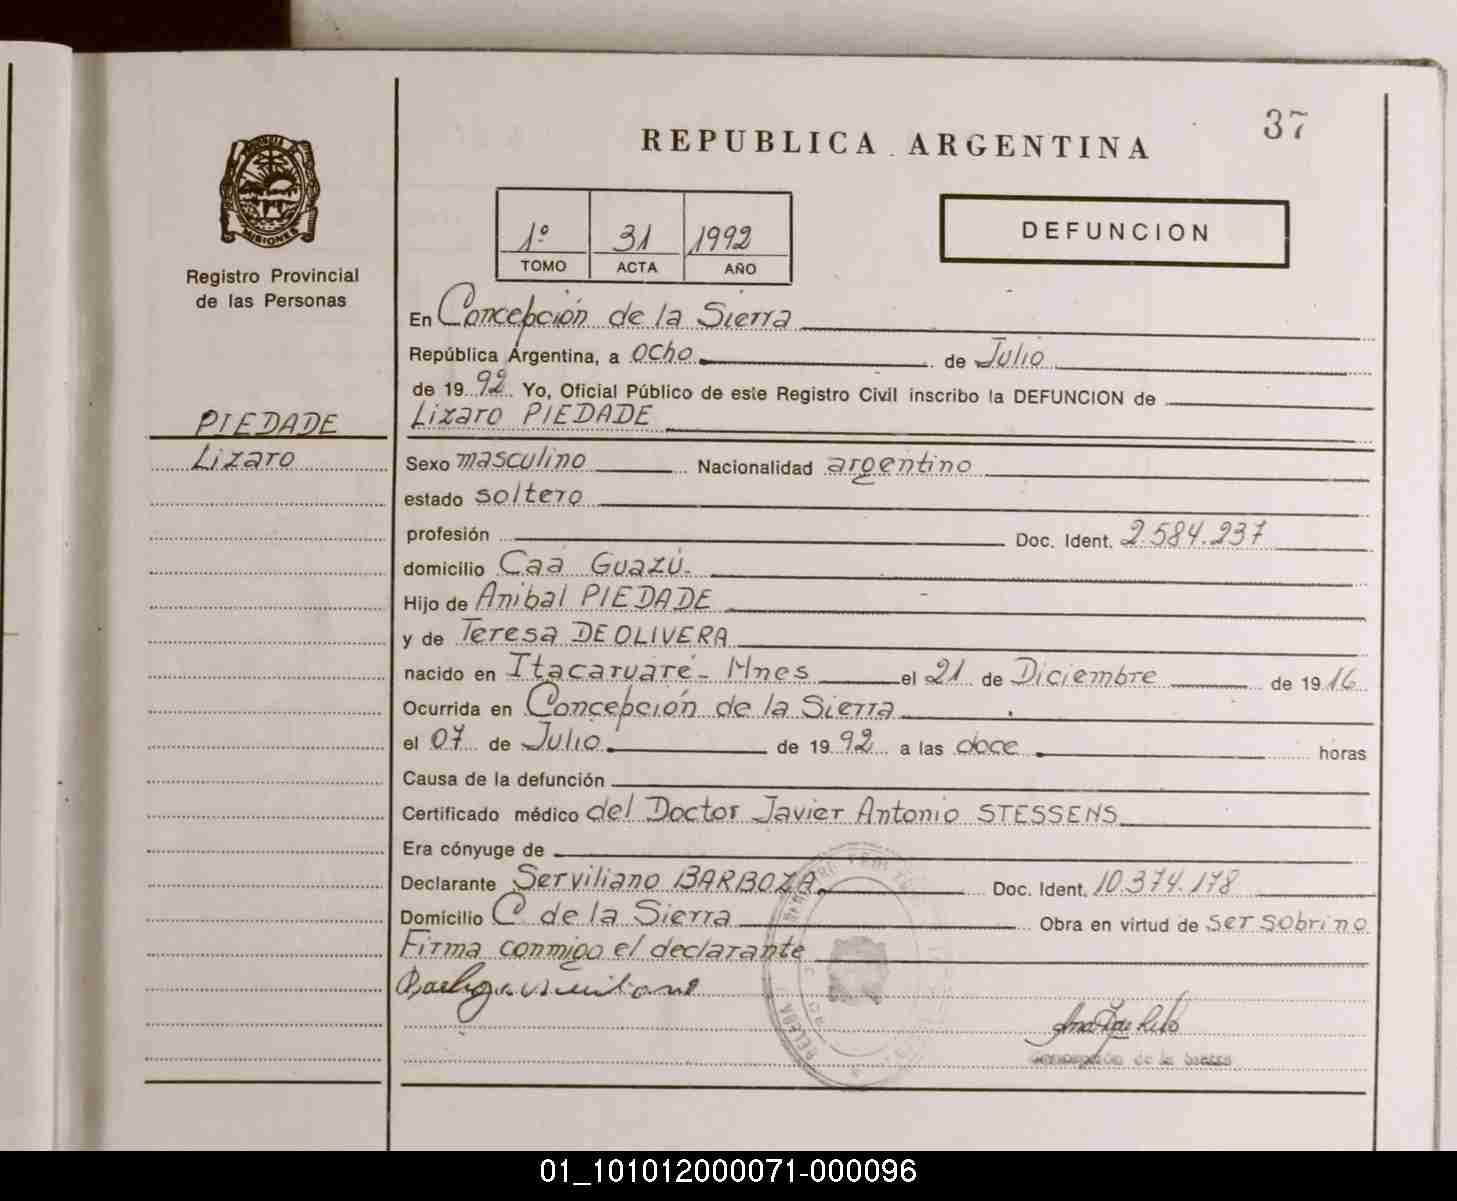 37
REPUBLICA ARGENTINA
MISIONES
Registro Provincial
de las Personas
1º 31 1992
TOMO ACTA AÑO
DEFUNCION
PIEDADE
Lizaro
En Concepción de la Sierra
República Argentina, a ocho de Julio
de 1992 Yo, Oficial Público de este Registro Civil inscribo la DEFUNCION de
Lizaro PIEDADE
Sexo masculino Nacionalidad argentino
estado soltero
profesión Doc. Ident. 2.584.237
domicilio Caá Guazú.
Hijo de Anibal PIEDADE
y de Teresa DE OLIVERA
nacido en Itacaruaré - Mnes el 21 de Diciembre de 1916
Ocurrida en Concepción de la Sierra
el 07 de Julio de 1992 a las doce horas
Causa de la defunción
Certificado médico del Doctor Javier Antonio STESSENS
Era cónyuge de
Declarante Serviliano BARBOZA Doc. Ident. 10.374.178
Domicilio C de la Sierra Obra en virtud de ser sobrino
Firma conmigo el declarante
Concepción de la Sierra
01_101012000071-000096